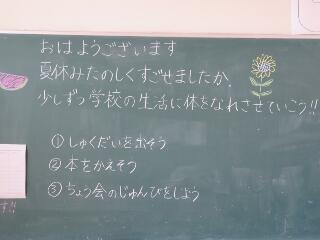 おはようございます
夏休みたのしくすごせましたか。
少しずつ学校の生活に体をなれさせていこう!!
①しゅくだいを出そう
②本をかえそう
③ちょう会のじゅんびをしよう
す!!